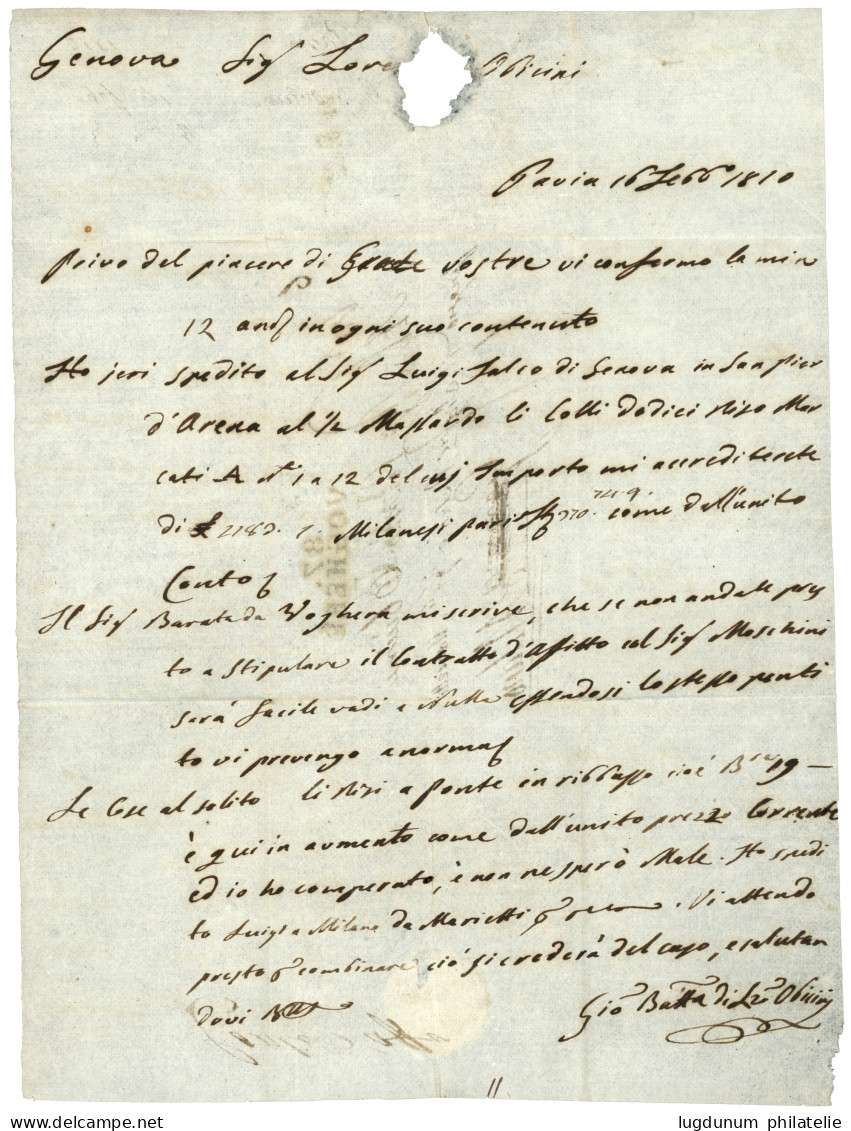 Genova Sig Lore Obicini
Pavia 16 Febb.o 1810
Privo del piacere di Grate vostre vi confermo la mia
12 and in ogni suo contenuto
Ho jeri spedito al Sig Luigi Falco di Genova in San Pier
d'Arena al 1/2 Massardo li Colli dodici Riso Mar
cati A N.i 1 a 12 del cuj Importo mi accrediterete
di £ 2182. 1. Milanesi pari 770. 14. 9. come dall'unito
Conto
Il Sig Barata da Voghera mi scrive, che se non andate pres
to a stipulare il Contratto d'Affitto col Sig Moschini
sarà facile vadi a Nulla essendosi lo stesso penti
to vi prevengo a norma
Le Cose al solito li Risi a Ponte in ribbasso cioè 19 —
è qui in aumento come dall'unito prezzo Corrente
ed io ho comperato, e non ne sperò Male. Ho spedi
to Luigi a Milano da Marietti. Vi attendo
presto combinare ciò si crederà del caso, e salutan
dovi
Gio Batta di Lzo Obicini
VOGHERA
87
lugdunum philatelie